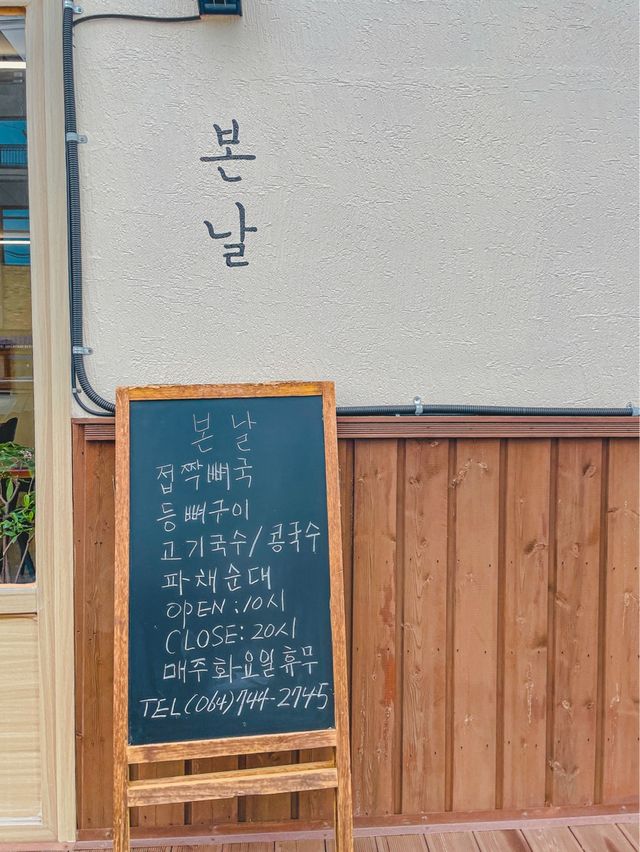 본
날
본 날
접짝뼈국
등뼈구이
고기국수/콩국수
파채순대
OPEN : 10시
CLOSE : 20시
매주화요일휴무
TEL(064)744-2745